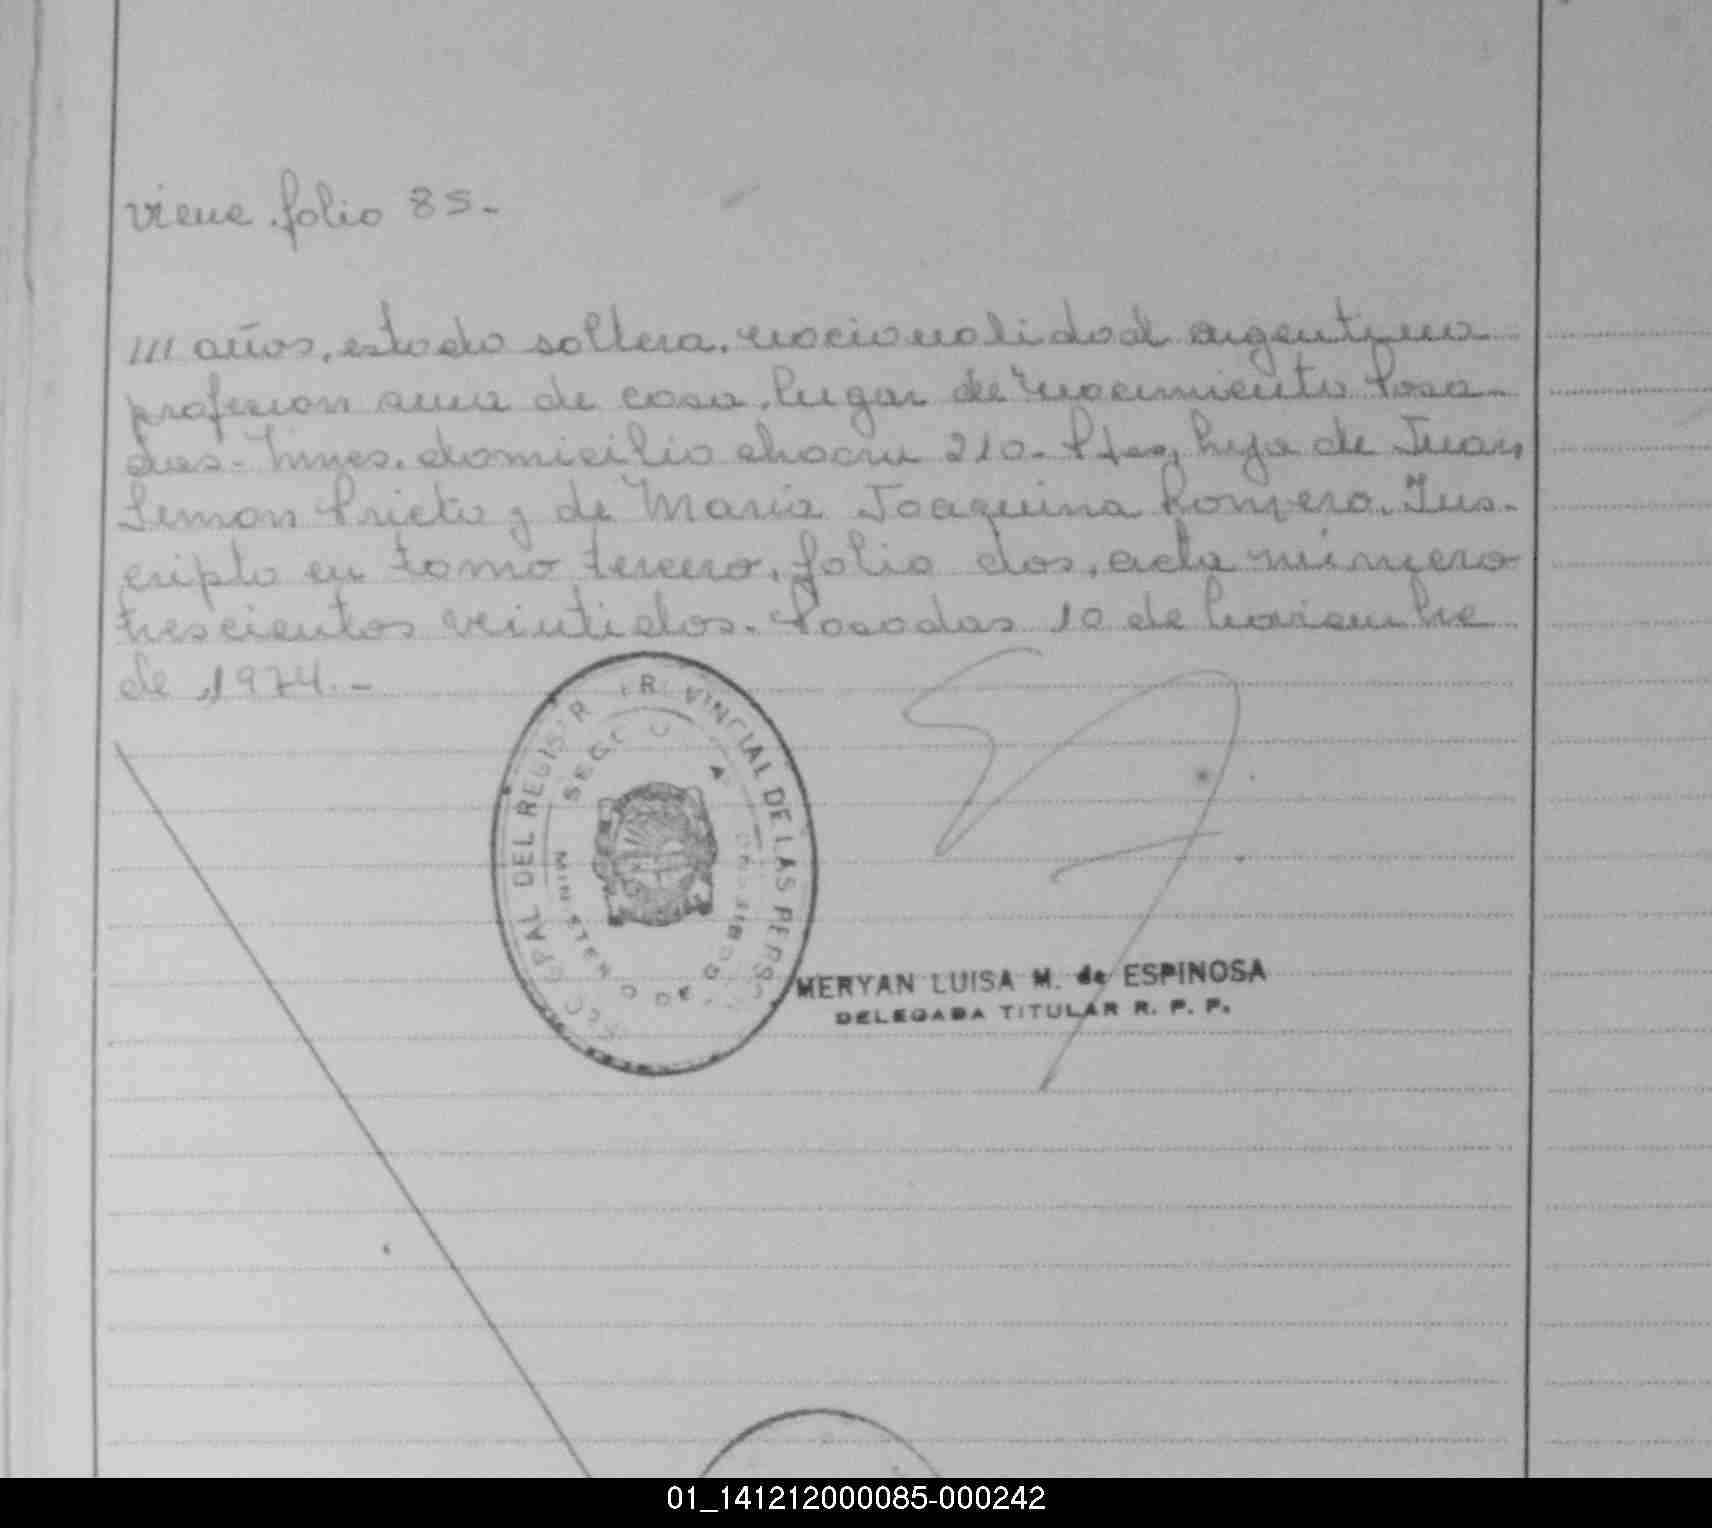 viene folio 85.-
/// años, estado soltera, nacionalidad argentina
profesion ama de casa, lugar de nacimiento Posa-
das - Mnes. domicilio chacra 210 - Pdas, hija de Juan
Simon Prieto y de Maria Joaquina Romero. Ins-
cripto en tomo tercero, folio dos, acta número
trescientos veintidos. Posadas 10 de noviembre
de 1974.-
PROVINCIAL DE LAS PERS
GPAL DEL REGISTR
MERYAN LUISA M. de ESPINOSA
DELEGADA TITULAR R. P. P.
01_141212000085-000242